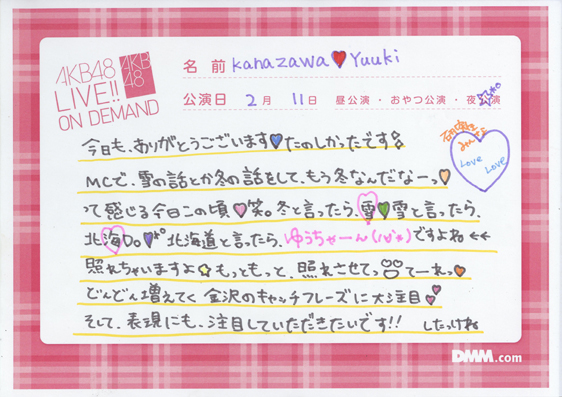 AKB48
LIVE!!
ON DEMAND
AKB
48
名前 kanazawa♥Yuuki
公演日 2月 11日 昼公演・おやつ公演・夜公演
今日も、ありがとうございます♥たのしかったです
MCで、雪の話とか冬の話をして、もう冬なんだなーっ♥
って感じる今日この頃♥笑。冬と言ったら、雪♥雪と言ったら、
北海Do。♥ 北海道と言ったら、ゆうちゃーんですよね←←
照れちゃいますよ☆もっともっと、照れさせてっ てーれっ♥
どんどん増えてく 金沢のキャッチフレーズに大注目
そして、表現にも、注目していただきたいです!! したっけね
Love
Love
DMM.com